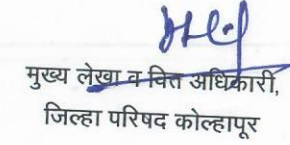 मुख्य लेखा व वित्त अधिकारी,
जिल्हा परिषद कोल्हापूर